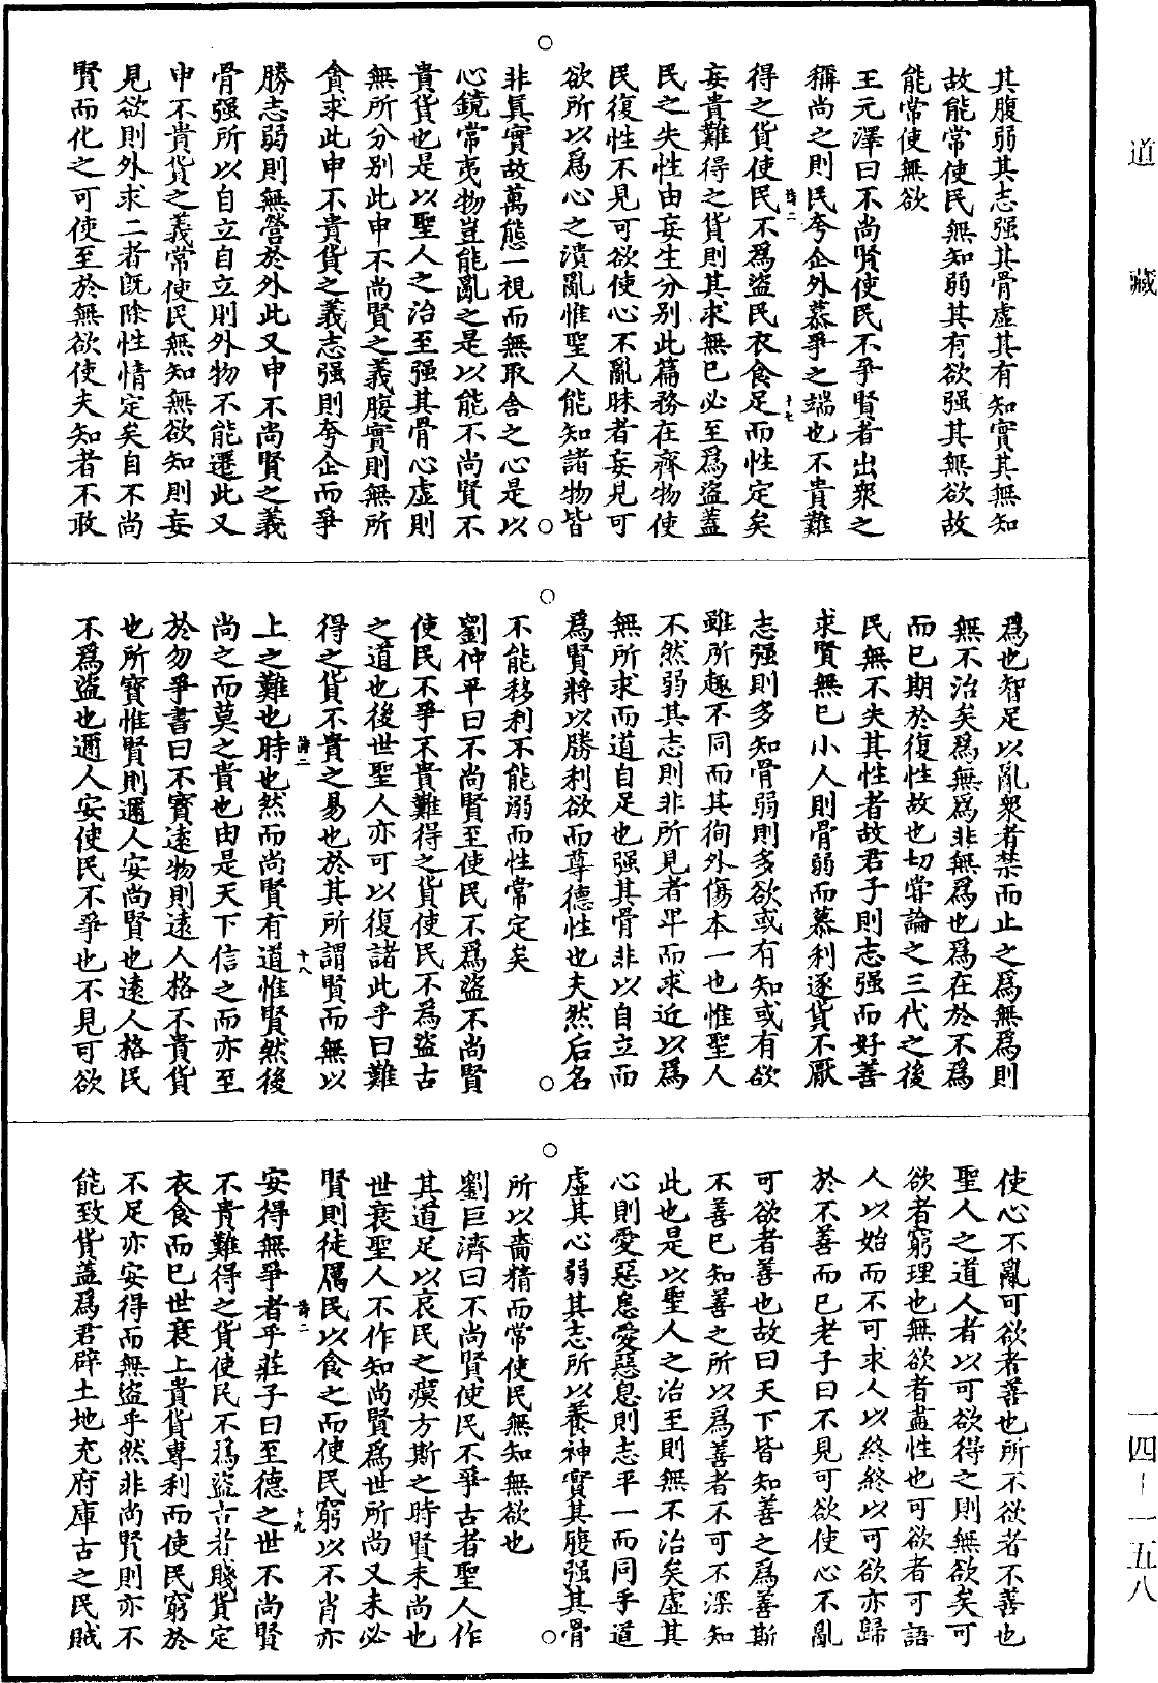 其腹弱其志强其骨虛其有知實其無知
故能常使民無知弱其有欲强其無欲故
能常使無欲
王元澤曰不尚賢使民不爭賢者出衆之
稱尚之則民夸企外慕爭之端也不貴難
得之貨使民不爲盜民衣食足而性定矣
妄貴難得之貨則其求無已必至爲盜蓋
民之失性由妄生分别此篇務在齊物使
民復性不見可欲使心不亂昧者妄見可
欲所以爲心之潰亂惟聖人能知諸物皆
非眞實故萬態一視而無取舍之心是以
心鏡常夷物豈能亂之是以能不尚賢不
貴貨也是以聖人之治至强其骨心虛則
無所分别此申不尚賢之義腹實則無所
貪求此申不貴貨之義志强則夸企而爭
勝志弱則無營於外此又申不尚賢之義
骨强所以自立自立則外物不能遷此又
申不貴貨之義常使民無知無欲知則妄
見欲則外求二者旣除性情定矣自不尚
賢而化之可使至於無欲使夫知者不敢
爲也智足以亂衆者禁而止之爲無爲則
無不治矣爲無爲非無爲也爲在於不爲
而已期於復性故也切嘗論之三代之後
民無不失其性者故君子則志强而好善
求賢無已小人則骨弱而慕利逐貨不厭
志强則多知骨弱則多欲或有知或有欲
雖所趣不同而其徇外傷本一也惟聖人
不然弱其志則非所見者卑而求近以爲
無所求而道自足也强其骨非以自立而
爲賢將以勝利欲而尊德性也夫然后名
不能移利不能溺而性常定矣
劉仲平曰不尚賢至使民不爲盜不尚賢
使民不爭不貴難得之貨使民不爲盜古
之道也後世聖人亦可以復諸此乎曰難
得之貨不貴之易也於其所謂賢而無以
上之難也時也然而尚賢有道惟賢然後
尚之而莫之貴也由是天下信之而亦至
於勿爭書曰不寳遠物則遠人格不貴貨
也所寳惟賢則邇人安尚賢也遠人格民
不爲盜也邇人安使民不爭也不見可欲
使心不亂可欲者善也所不欲者不善也
聖人之道人者以可欲得之則無欲矣可
欲者窮理也無欲者盡性也可欲者可語
人以始而不可求人以終終以可欲亦歸
於不善而已老子曰不見可欲使心不亂
可欲者善也故曰天下皆知善之爲善斯
不善已知善之所以爲善者不可不深知
此也是以聖人之治至則無不治矣虛其
心則愛惡怠愛惡息則志平一而同乎道
虛其心弱其志所以養神實其腹强其骨
所以嗇精而常使民無知無欲也
劉巨濟曰不尚賢使民不爭古者聖人作
其道足以哀民之瘼方斯之時賢未尚也
世衰聖人不作知尚賢爲世所尚又未必
賢則徒厲民以食之而使民窮以不肖亦
安得無爭者乎莊子曰至德之世不尚賢
不貴難得之貨使民不爲盜古者賤貨定
衣食而已世衰上貴貨專利而使民窮於
不足亦安得而無盜乎然非尚賢則亦不
能致貨蓋爲君辟土地充府庫古之民賊
詩二
十七
詩二
十八
詩二
十九
道藏
一四-一五八